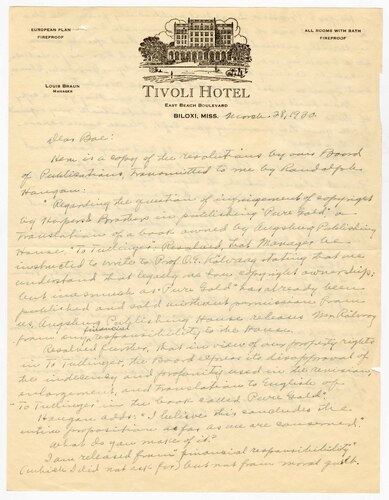 EUROPEAN PLAN
FIREPROOF
ALL ROOMS WITH BATH
FIREPROOF
LOUIS BRAUN
MANAGER
TIVOLI HOTEL
EAST BEACH BOULEVARD
BILOXI, MISS. March 28, 1930.
Dear Boe:
Here is a copy of the resolutions by our Board
of Publications, transmitted to me by Randolph
Haugan:
"Regarding the question of infringement of copyright
by Harpers Brothers in publishing "Pure Gold" a
translation of a book owned by Augsburg Publishing
House, "To Tullinger." Resolved, that Manager be
instructed to write to Prof. O. E. Rölvaag stating that we
understand that legally we have copyright ownership;
but inasmuch as "Pure Gold" has already been
published and sold without permission from
us, Augsburg Publishing House releases Mr. Rölvaag
from any financial responsibility to the House.
Resolved further, that in view of our property rights
in To Tullinger, the Board express its disapproval of
the indecency and profanity used in the revision,
enlargement, and translation to English of
"To Tullinger" in the book called Pure Gold."
Haugan adds: "I believe this concludes the
entire proposition as far as we are concerned."
What do you make of it?
I am released from "financial responsibility"
(which I did not ask for) but not from moral guilt.